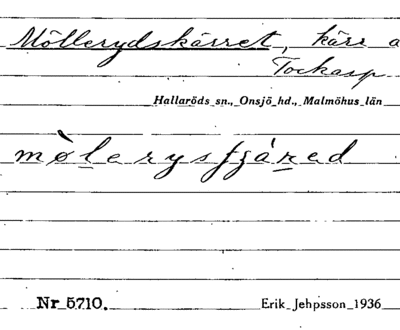 Möllerydskärret, kärr a
Tockarp
Hallaröds sn., Onsjö hd., Malmöhus län
mòlerysfjáred
Nr 5710.
Erik Jehpsson 1936